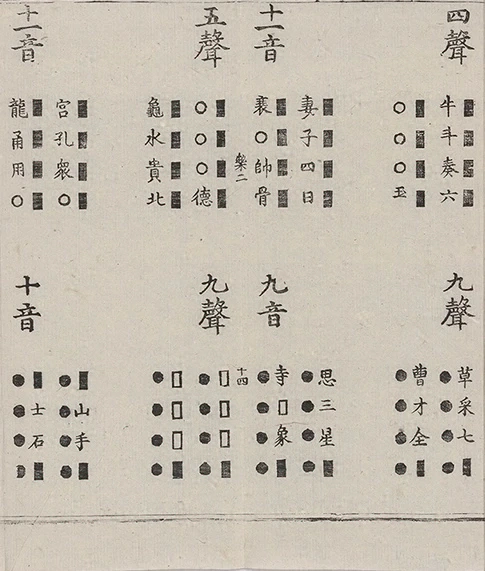 四聲
■■■■
牛斗奏六
■■■■
○○○玉
十一音
■■■■
妻子四日
■■■■
衰○帥骨
樂二
五聲
■■■■
○○○德
■■■■
龜水貴北
十一音
■■■■
宮孔眾○
■■■■
龍甬用○
九聲
草采七■
●●●●
曹才全■
●●●●
九音
思三星■
●●●●
寺□象■
●●●●
十四
九聲
□□□■
●●●●
□□□■
●●●●
十音
■山手■
●●●●
■士石■
●●●●